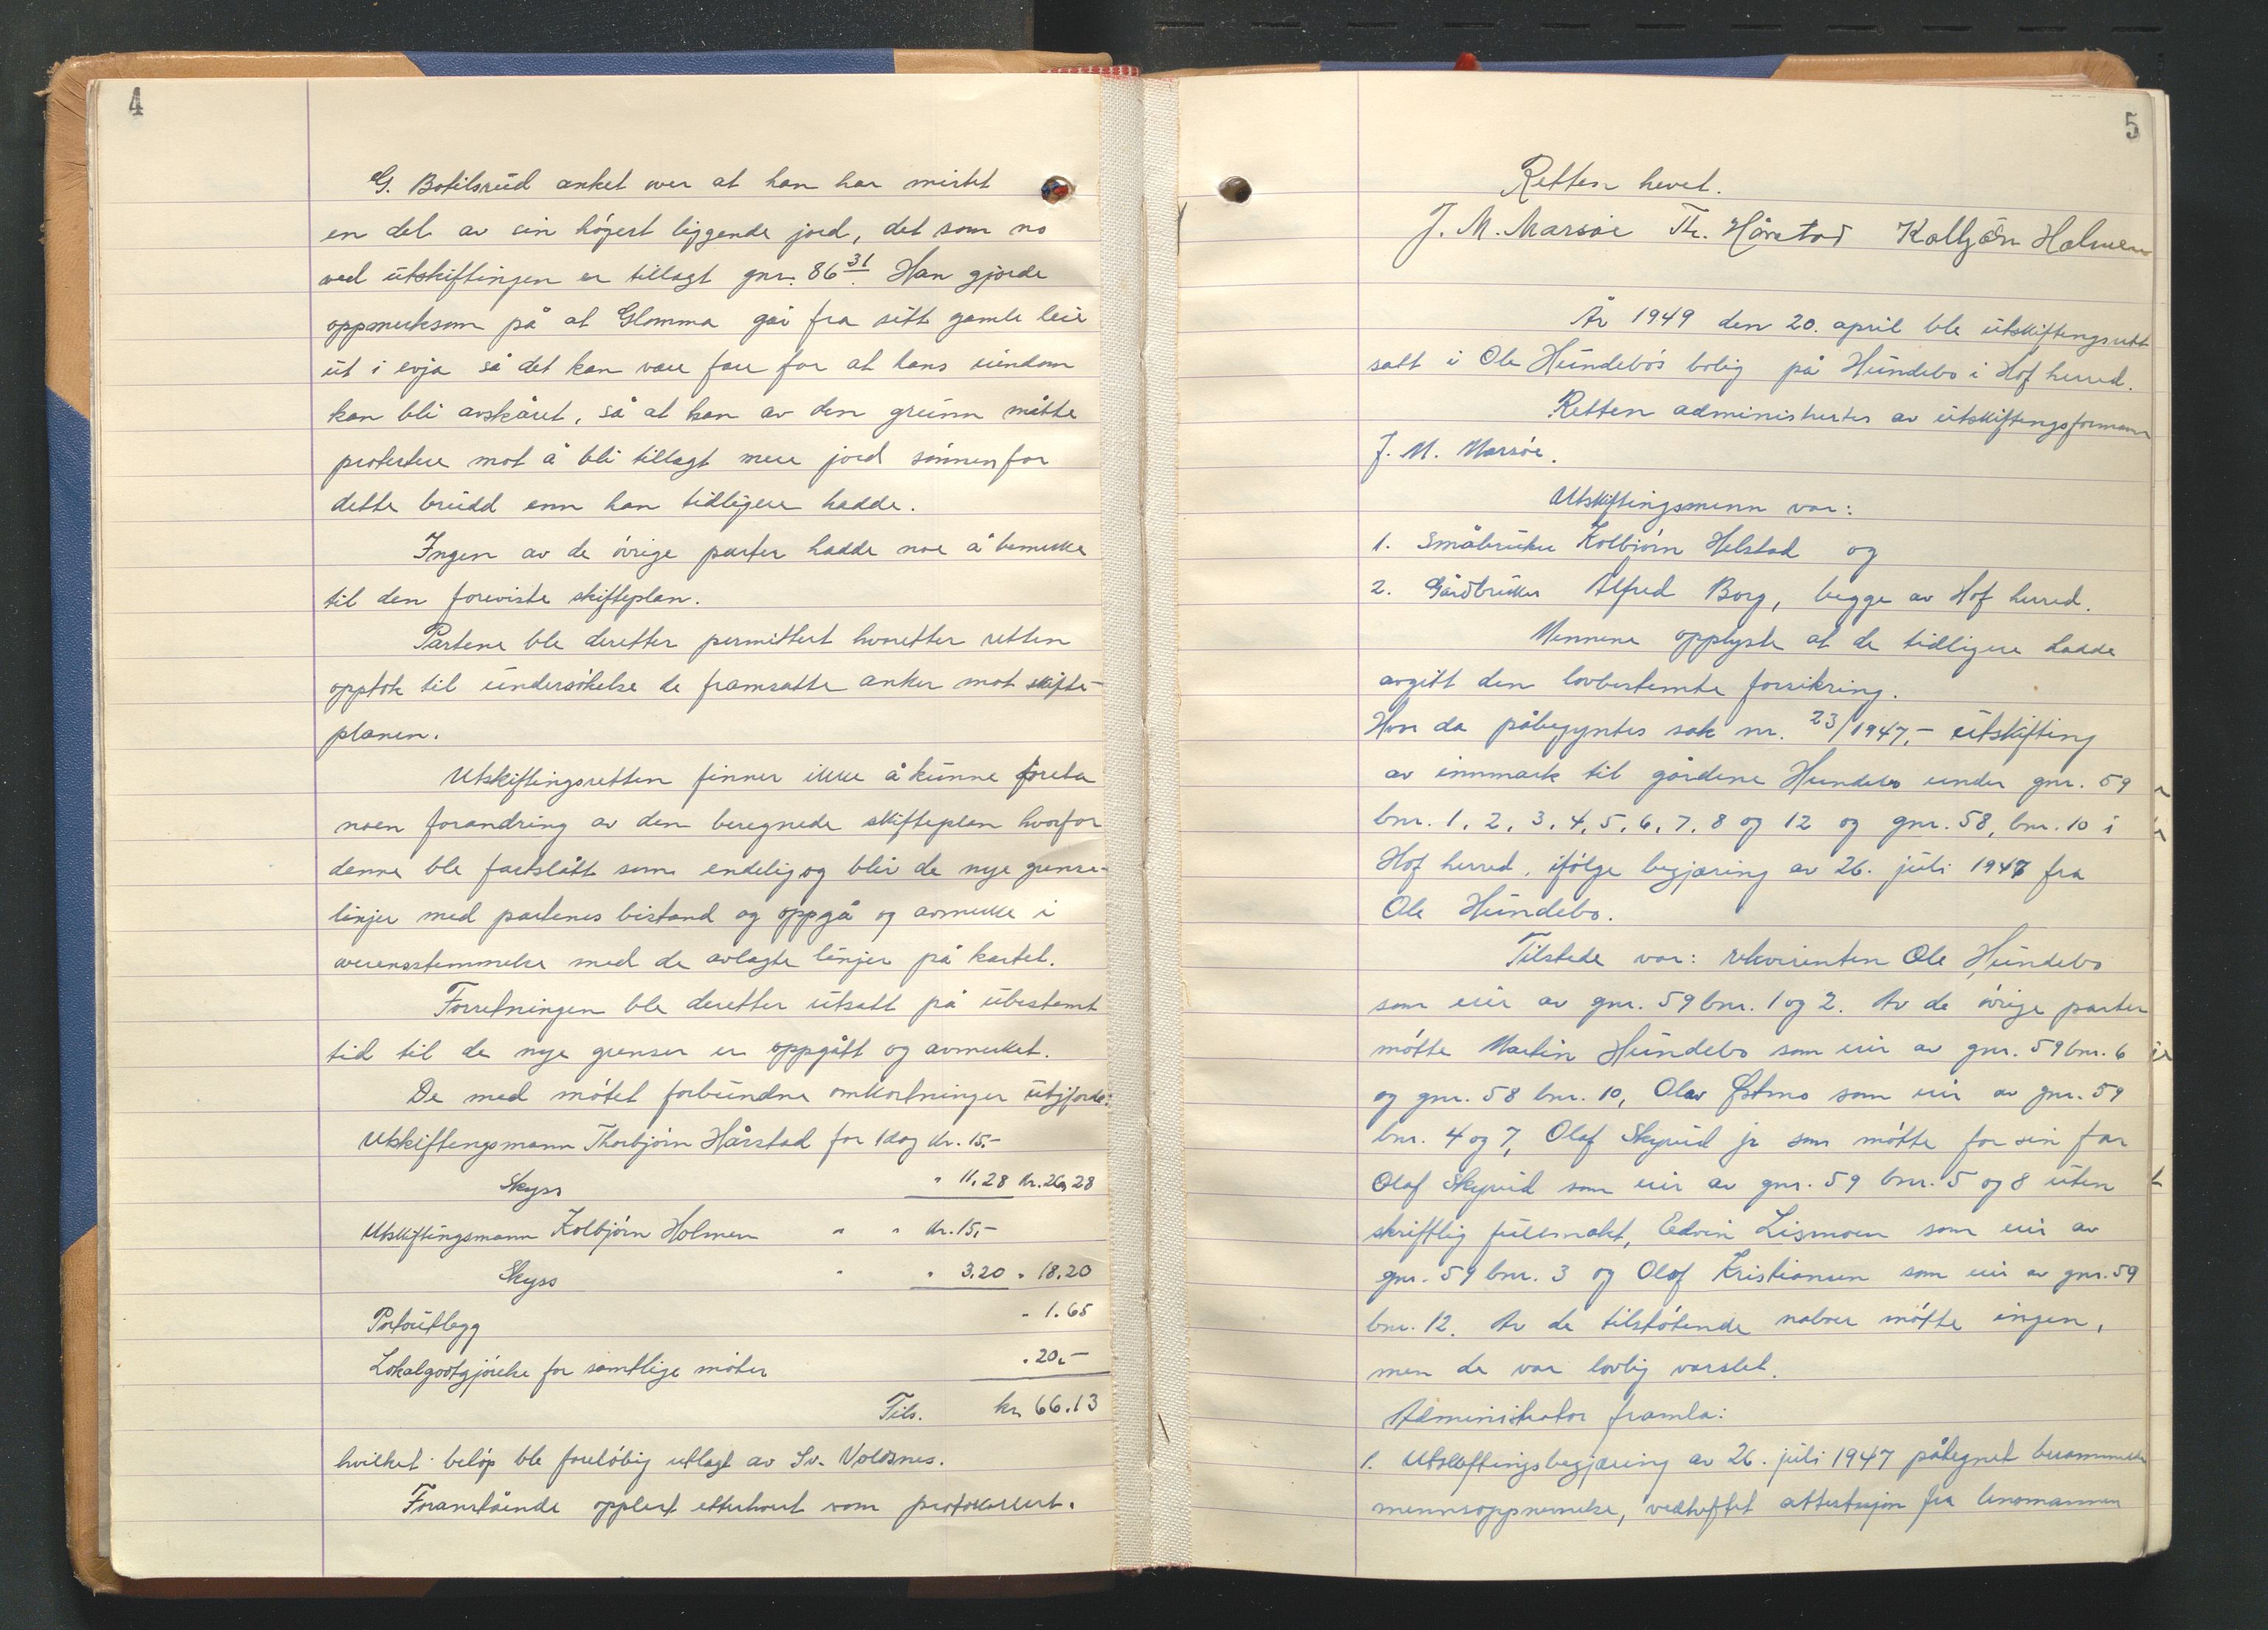 4
G. Botilsrud anket over at han har mistet
en del av sin högest liggende jord, det som no
ved utskiftingen er tillagt gnr. 86 31. Han gjorde
oppmerksom på at Glomma går fra sitt gamle leie
ut i evja så det kan være fare for at hans eiendom
kan bli avskåret, så at han av den grunn måtte
protestere mot å bli tillagt mere jord sönnenfor
dette brudd enn han tidligere hadde.
Ingen av de övrige parter hadde noe å bemerke
til den foreviste skifteplan.
Partene ble deretter permittert hvoretter retten
opptok til undersökelse de framsatte anker mot skifte-
planen.
Utskiftingsretten finner ikke å kunne foreta
noen forandring av den beregnede skifteplan hvorfor
denne ble fastslått som endelig og blir de nye grense-
linjer med partenes bistand og oppgå og avmerke i
overensstemmelse med de avlagte linjer på kartet.
Forretningen ble deretter utsatt på ubestemt
tid til de nye grenser er oppgått og avmerket.
De med mötet forbundne omkostninger utgjorde:
Utskiftingsmann Thorbjörn Hårstad for 1 dag kr. 15.-
Skyss " 11.28 kr. 26,28
Utskiftingsmann Kolbjörn Holmen " " kr. 15,-
Skyss " " 3.20 " 18.20
Portoutlegg " 1.65
Lokalgodtgjörelse for samtlige möter " 20.-
Tils. kr. 66.13
hvilket belöp ble forelöbig utlagt av Sv. Voldsnes.
Foranstående opplest etterhvert som protokollert.
5
Retten hevet.
J. M. Marsöe Th. Hårstad Kolbjörn Holmen
År 1949 den 20. april ble utskiftingsrett
satt i Ole Hundebös bolig på Hundebo i Hof herred.
Retten administrertes av utskiftingsformann
J. M. Marsöe.
Utskiftingsmenn var:
1. Småbruker Kolbiörn Helstad og
2. Gårdbruker Alfred Borg, begge av Hof herred.
Mennene opplyste at de tidligere hadde
avgitt den lovbestemte forsikring.
Hvor da påbegyntes sak nr. 23/1947,- utskifting
av innmark til gårdene Hundebo under gnr. 59
bnr. 1, 2, 3, 4, 5, 6, 7, 8 og 12 og gnr. 58, bnr. 10 i
Hof herred, ifölge begjæring av 26. juli 1947 fra
Ole Hundebo.
Tilstede var: rekvirenten Ole Hundebo
som eier av gnr. 59 bnr. 1 og 2. Av de övrige parter
mötte Martin Hundebo som eier av gnr. 59 bnr. 6
og gnr. 58 bnr. 10, Olav Østmo som eier av gnr. 59
bnr. 4 og 7, Olaf Skyrud jr som mötte for sin far
Olaf Skyrud som eier av gnr. 59 bnr. 5 og 8 uten
skriftlig fullmakt, Edvin Lismoen som eier av
gnr. 59 bnr. 3 og Olaf Kristiansen som eier av gnr. 59
bnr. 12. Av de tilstötende naboer mötte ingen,
men de var lovlig varslet.
Administrator framla:
1. Utskiftingsbegjæring av 26. juli 1947 påtegnet berammelse
mennsoppnevnelse, vedheftet attestasjon fra lensmannen